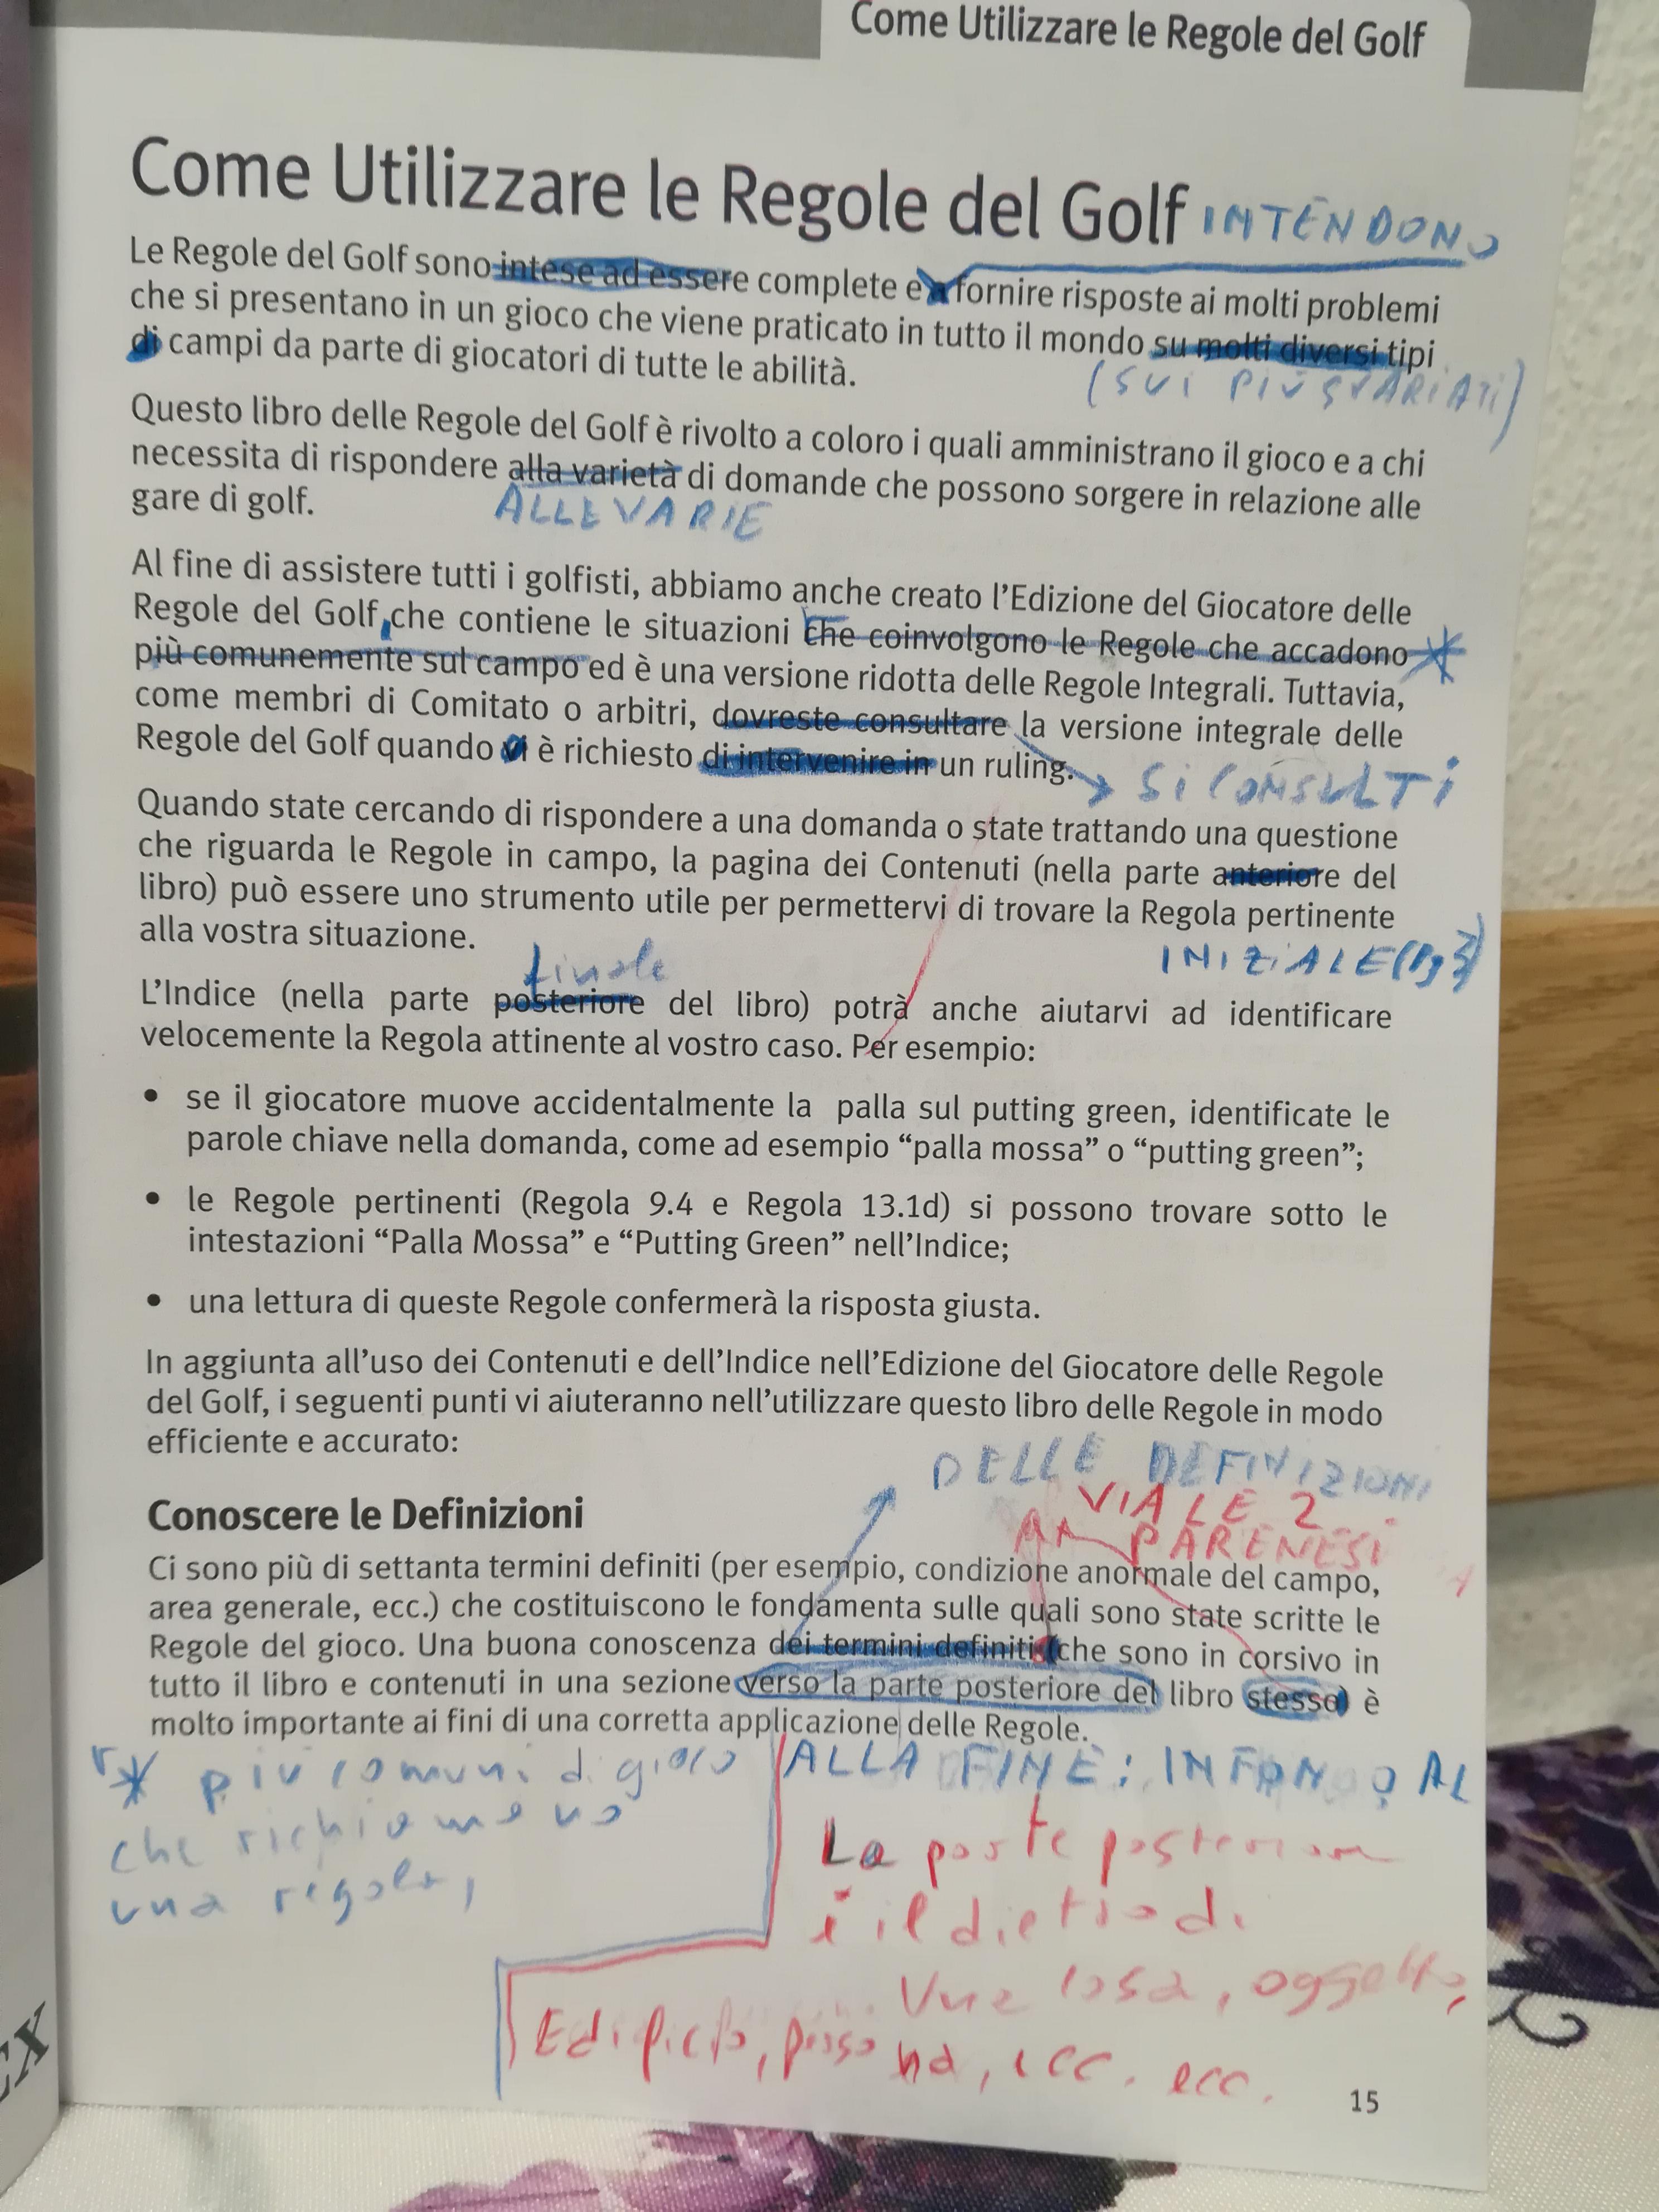 Come Utilizzare le Regole del Golf
Come Utilizzare le Regole del Golf INTENDONO
Le Regole del Golf sono intese ad essere complete e a fornire risposte ai molti problemi
che si presentano in un gioco che viene praticato in tutto il mondo su molti diversi tipi
di campi da parte di giocatori di tutte le abilità.
(SUI PIÙ SVARIATI)
Questo libro delle Regole del Golf è rivolto a coloro i quali amministrano il gioco e a chi
necessita di rispondere alla varietà di domande che possono sorgere in relazione alle
gare di golf.
ALLE VARIE
Al fine di assistere tutti i golfisti, abbiamo anche creato l'Edizione del Giocatore delle
Regole del Golf, che contiene le situazioni che coinvolgono le Regole che accadono *
più comunemente sul campo ed è una versione ridotta delle Regole Integrali. Tuttavia,
come membri di Comitato o arbitri, dovreste consultare la versione integrale delle
Regole del Golf quando vi è richiesto di intervenire in un ruling.
SI CONSULTI
Quando state cercando di rispondere a una domanda o state trattando una questione
che riguarda le Regole in campo, la pagina dei Contenuti (nella parte anteriore del
libro) può essere uno strumento utile per permettervi di trovare la Regola pertinente
alla vostra situazione.
INIZIALE (Pg 3)
finale
L'Indice (nella parte posteriore del libro) potrà anche aiutarvi ad identificare
velocemente la Regola attinente al vostro caso. Per esempio:
• se il giocatore muove accidentalmente la palla sul putting green, identificate le
parole chiave nella domanda, come ad esempio “palla mossa” o “putting green”;
• le Regole pertinenti (Regola 9.4 e Regola 13.1d) si possono trovare sotto le
intestazioni “Palla Mossa” e “Putting Green” nell'Indice;
• una lettura di queste Regole confermerà la risposta giusta.
In aggiunta all'uso dei Contenuti e dell'Indice nell'Edizione del Giocatore delle Regole
del Golf, i seguenti punti vi aiuteranno nell'utilizzare questo libro delle Regole in modo
efficiente e accurato:
DELLE DEFINIZIONI
VIALE 2
PARENESI
Conoscere le Definizioni
Ci sono più di settanta termini definiti (per esempio, condizione anormale del campo,
area generale, ecc.) che costituiscono le fondamenta sulle quali sono state scritte le
Regole del gioco. Una buona conoscenza dei termini definiti (che sono in corsivo in
tutto il libro e contenuti in una sezione verso la parte posteriore del libro stesso) è
molto importante ai fini di una corretta applicazione delle Regole.
* più comuni di gioco
che richiamano
una regola,
ALLA FINE; IN FONDO AL
La parte posteriore
è il dietro di
Una cosa, oggetto,
Edificio, persona, ecc. ecc.
15